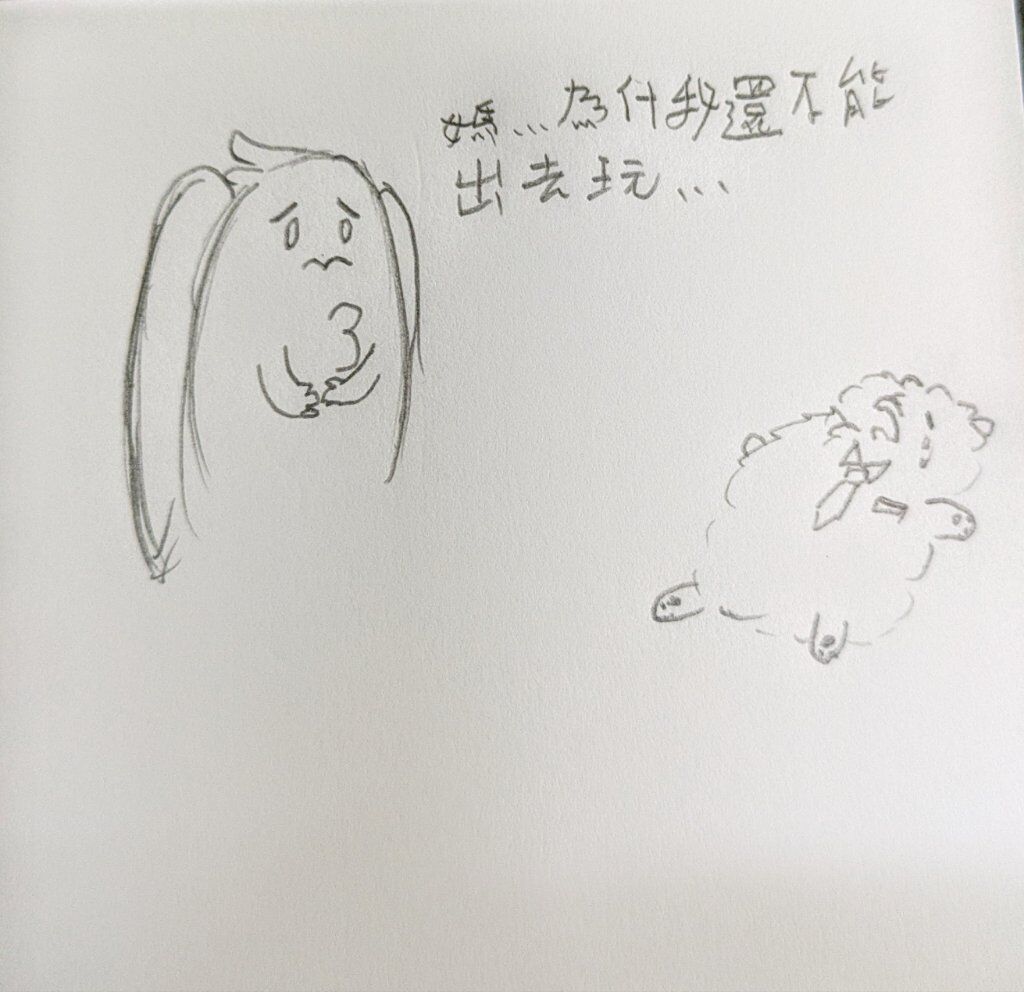 媽...為什我還不能
出去玩...